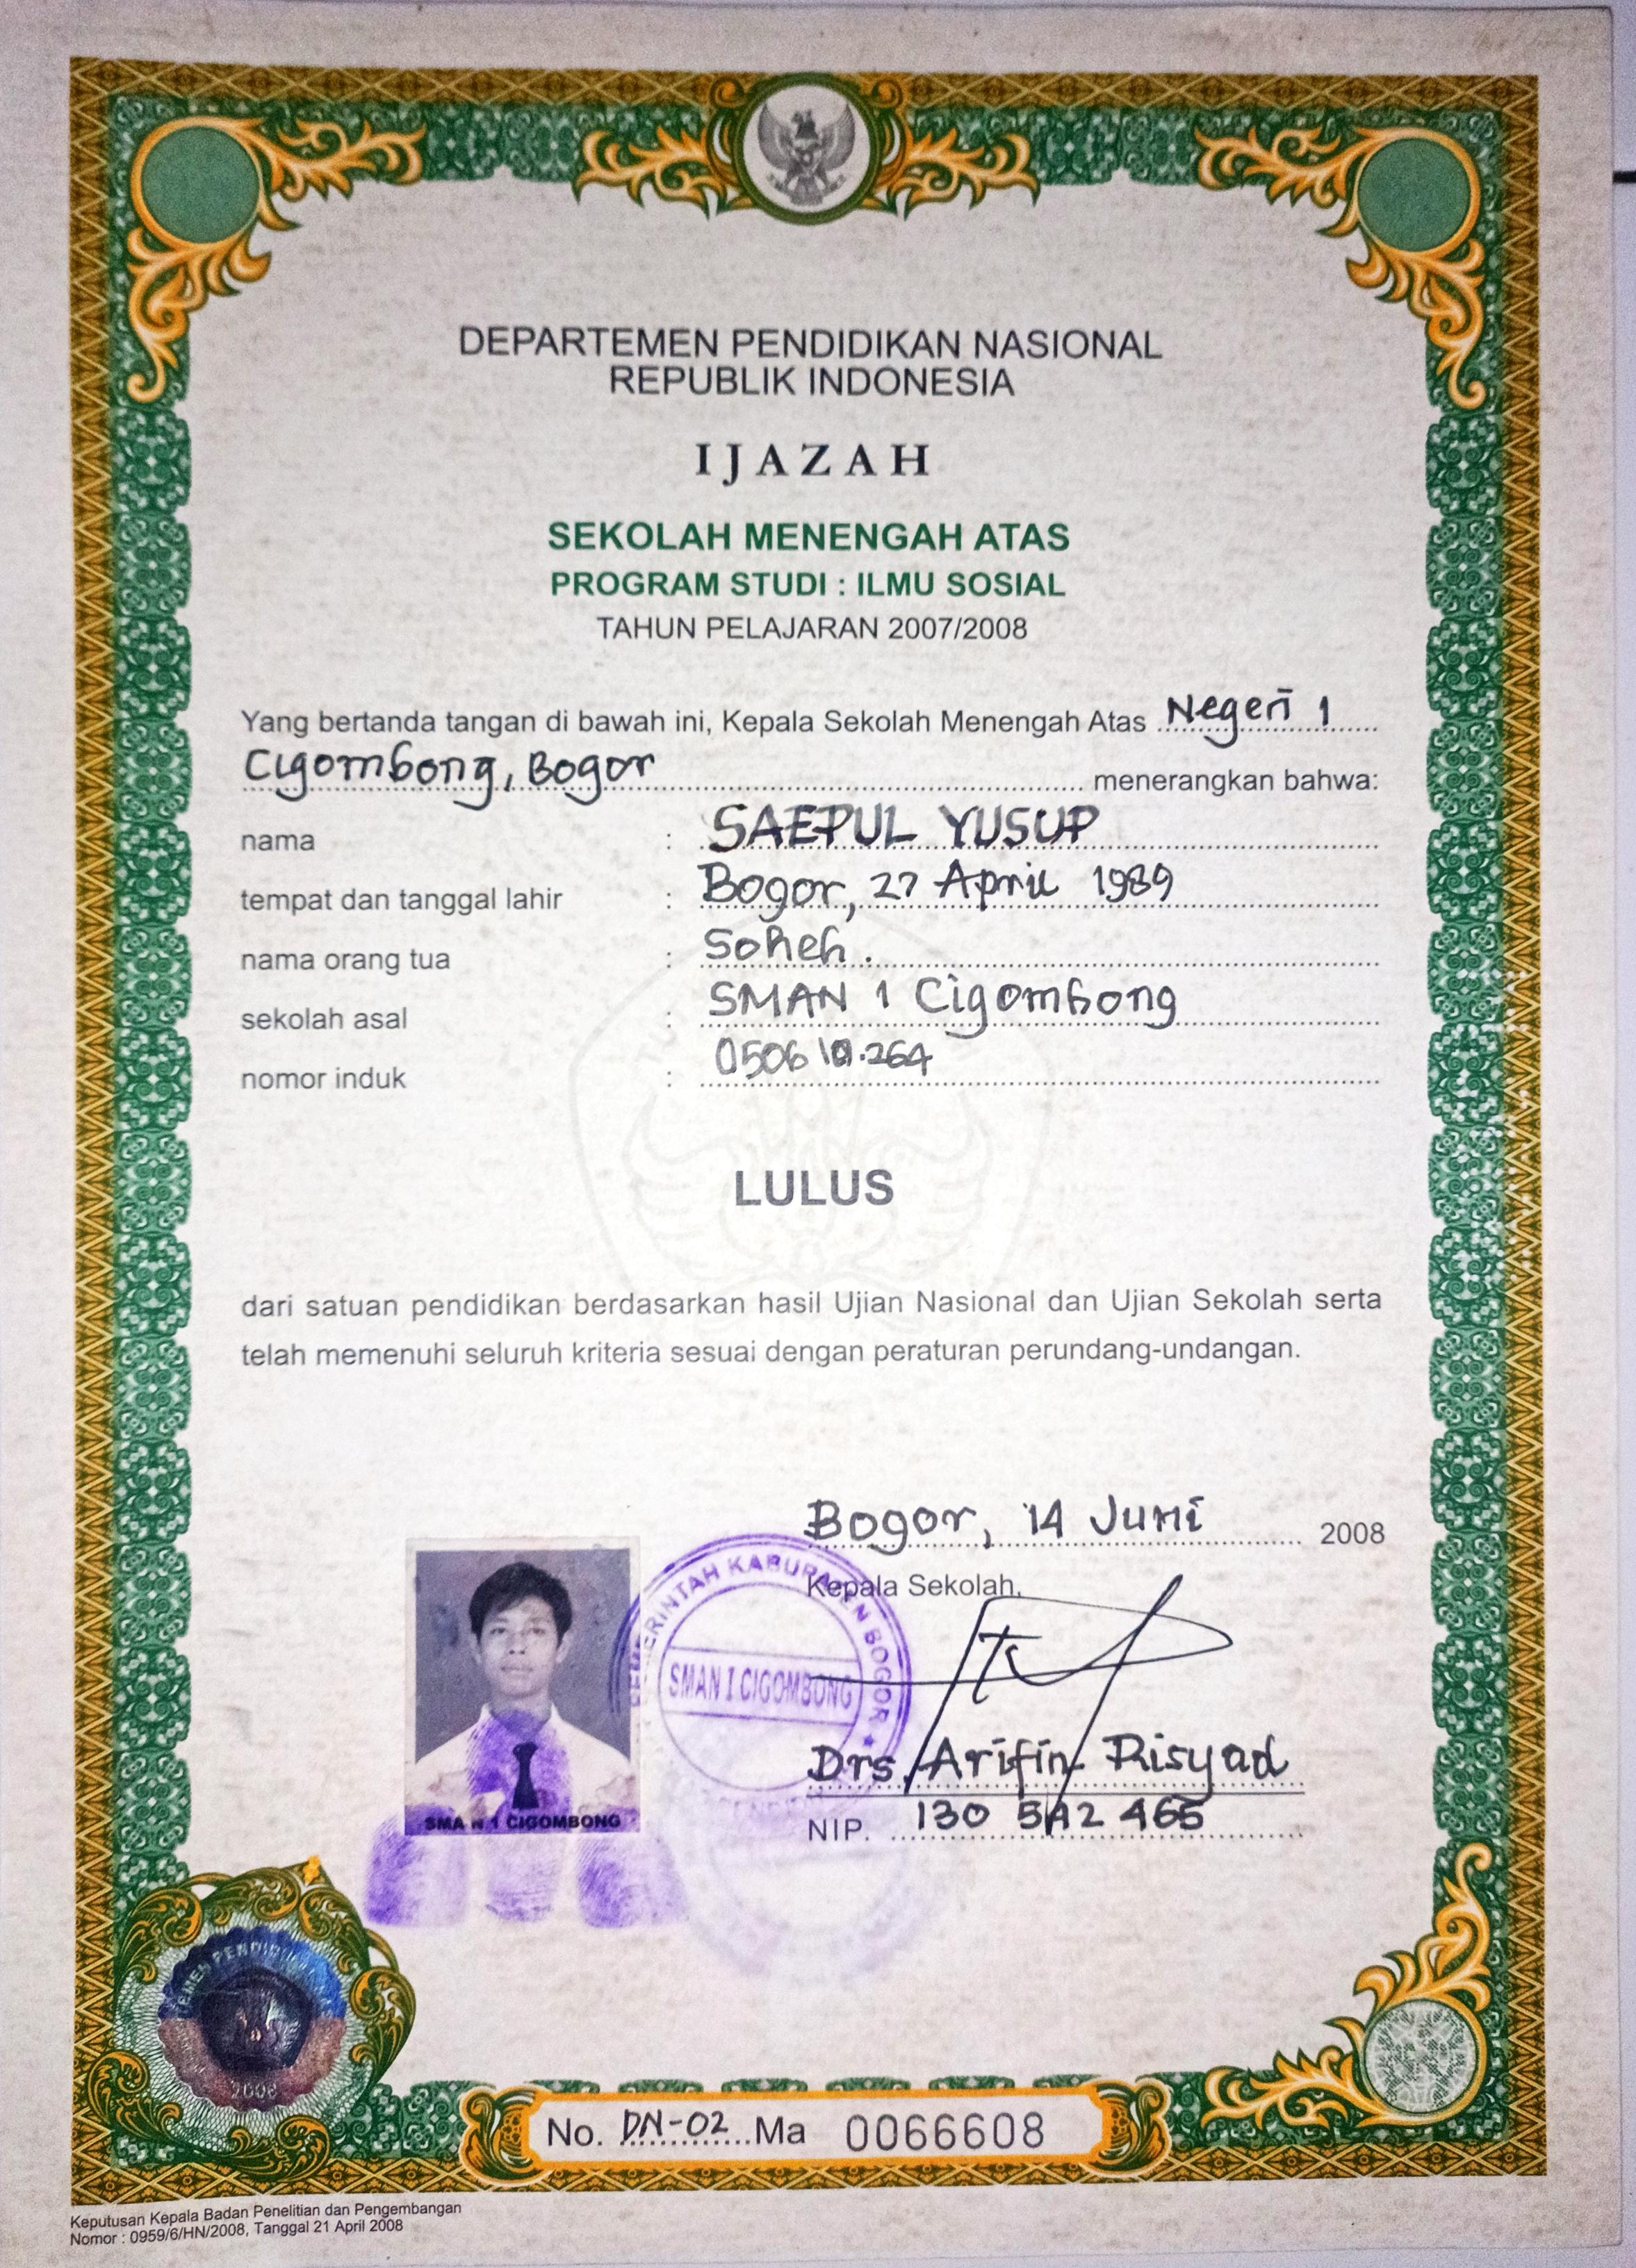 DEPARTEMEN PENDIDIKAN NASIONAL
REPUBLIK INDONESIA
IJAZAH
SEKOLAH MENENGAH ATAS
PROGRAM STUDI : ILMU SOSIAL
TAHUN PELAJARAN 2007/2008
Yang bertanda tangan di bawah ini, Kepala Sekolah Menengah Atas Negeri 1
Cigombong, Bogor menerangkan bahwa:
nama : SAEPUL YUSUP
tempat dan tanggal lahir : Bogor, 27 April 1989
nama orang tua : Soheh.
sekolah asal : SMAN 1 Cigombong
nomor induk : 0506 10.264
LULUS
dari satuan pendidikan berdasarkan hasil Ujian Nasional dan Ujian Sekolah serta
telah memenuhi seluruh kriteria sesuai dengan peraturan perundang-undangan.
Bogor, 14 Juni 2008
Kepala Sekolah,
PEMERINTAH KABUPATEN BOGOR
SMAN I CIGOMBONG
Drs. Arifin Risyad
NIP. 130 542 465
SMA N 1 CIGOMBONG
PENDIDIKAN
2008
No. DN-02 Ma 0066608
Keputusan Kepala Badan Penelitian dan Pengembangan
Nomor : 0959/6/HN/2008, Tanggal 21 April 2008